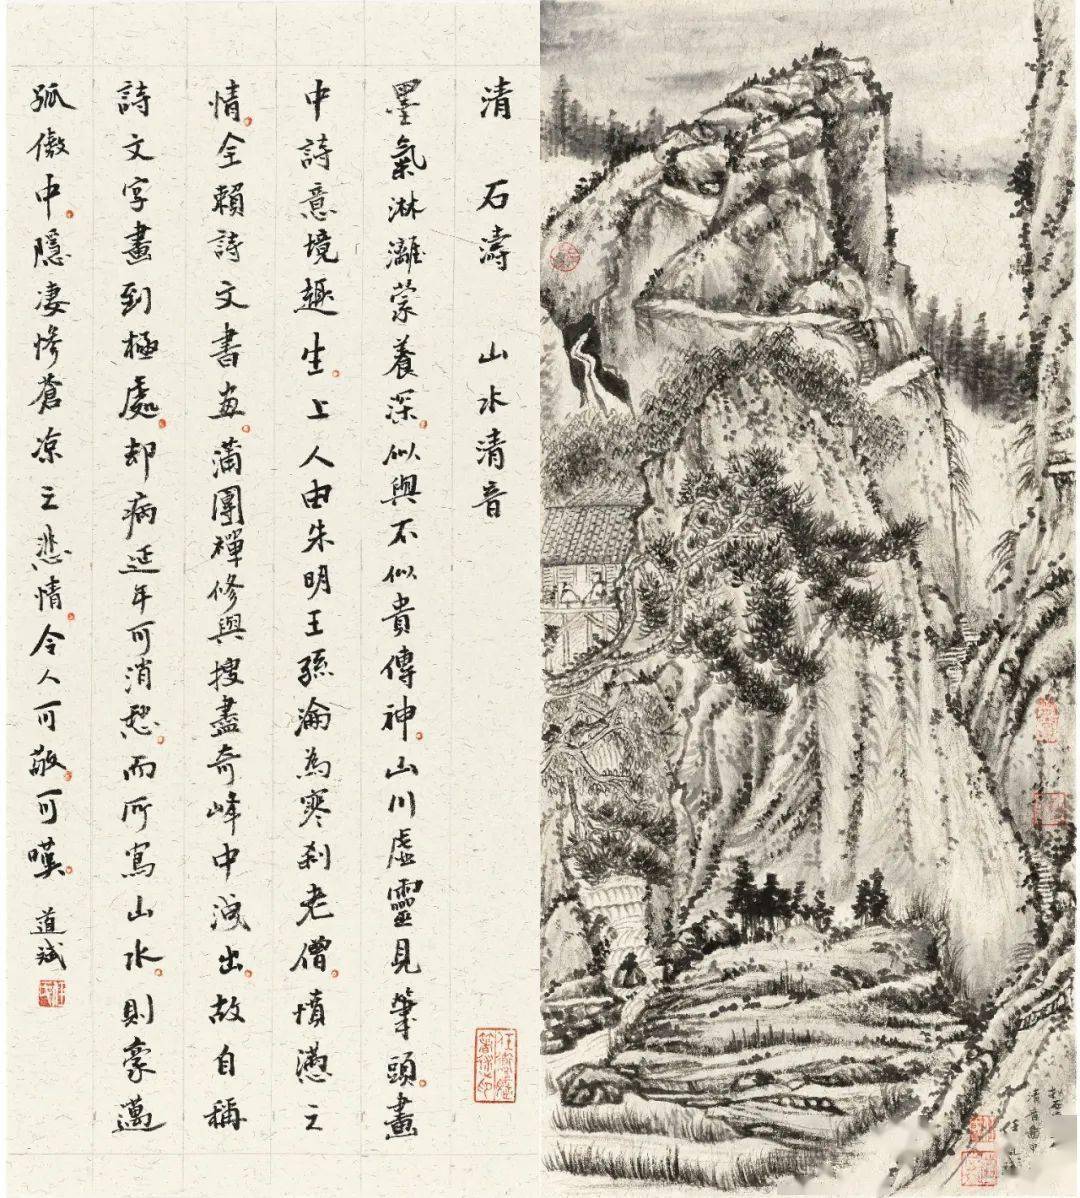 清 石濤 山水清音
墨氣淋漓蒙養深。似與不似貴傳神。山川虛靈見筆頭。畫
中詩意境趣生。上人由朱明王孫淪為寒刹老僧。憤懣之
情。全賴詩文書画。蒲團禪修與搜盡奇峰中洩出。故自稱
詩文字畫到極處。却病延年可消愁。而所寫山水。則豪邁
孤傲中。隱凄慘蒼凉之悲情。令人可敬。可嘆。 道斌